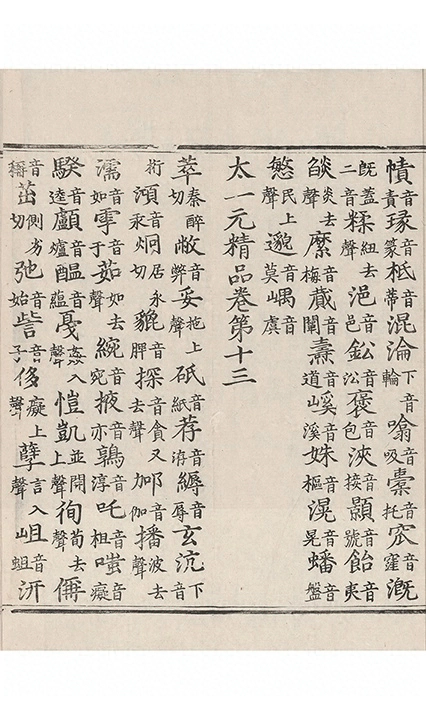 幘音責瑑音篆柢音蒂混淪下音輪噏音吸橐音托窊音窪溉
既蓋二音糅紐去聲浥音邑鈆音㳂褒音包浹音接顥音號飴音夷
燄炎去聲縻音梅蕆音闡燾音道嵠音溪姝音樞滉音晃蟠音盤
慜民上聲邈音莫嵎音虞
太一元精品卷第十三
萃秦醉切敝音弊妥拖上聲砥音紙荐音洊縟音辱玄沆下音
桁澒音汞炯居永切貔音脾探音貪又去聲音伽播波去聲
濡音如雩音于茹如去聲綩音宛掖音亦鶉音淳吒音柤嗤音癡
騤音逵顱音爐醞音蘊戞姦入聲愷凱並開上聲徇荀去聲
音茁側劣切弛音始訾音子侈癡上聲孽言入聲岨音蛆汧